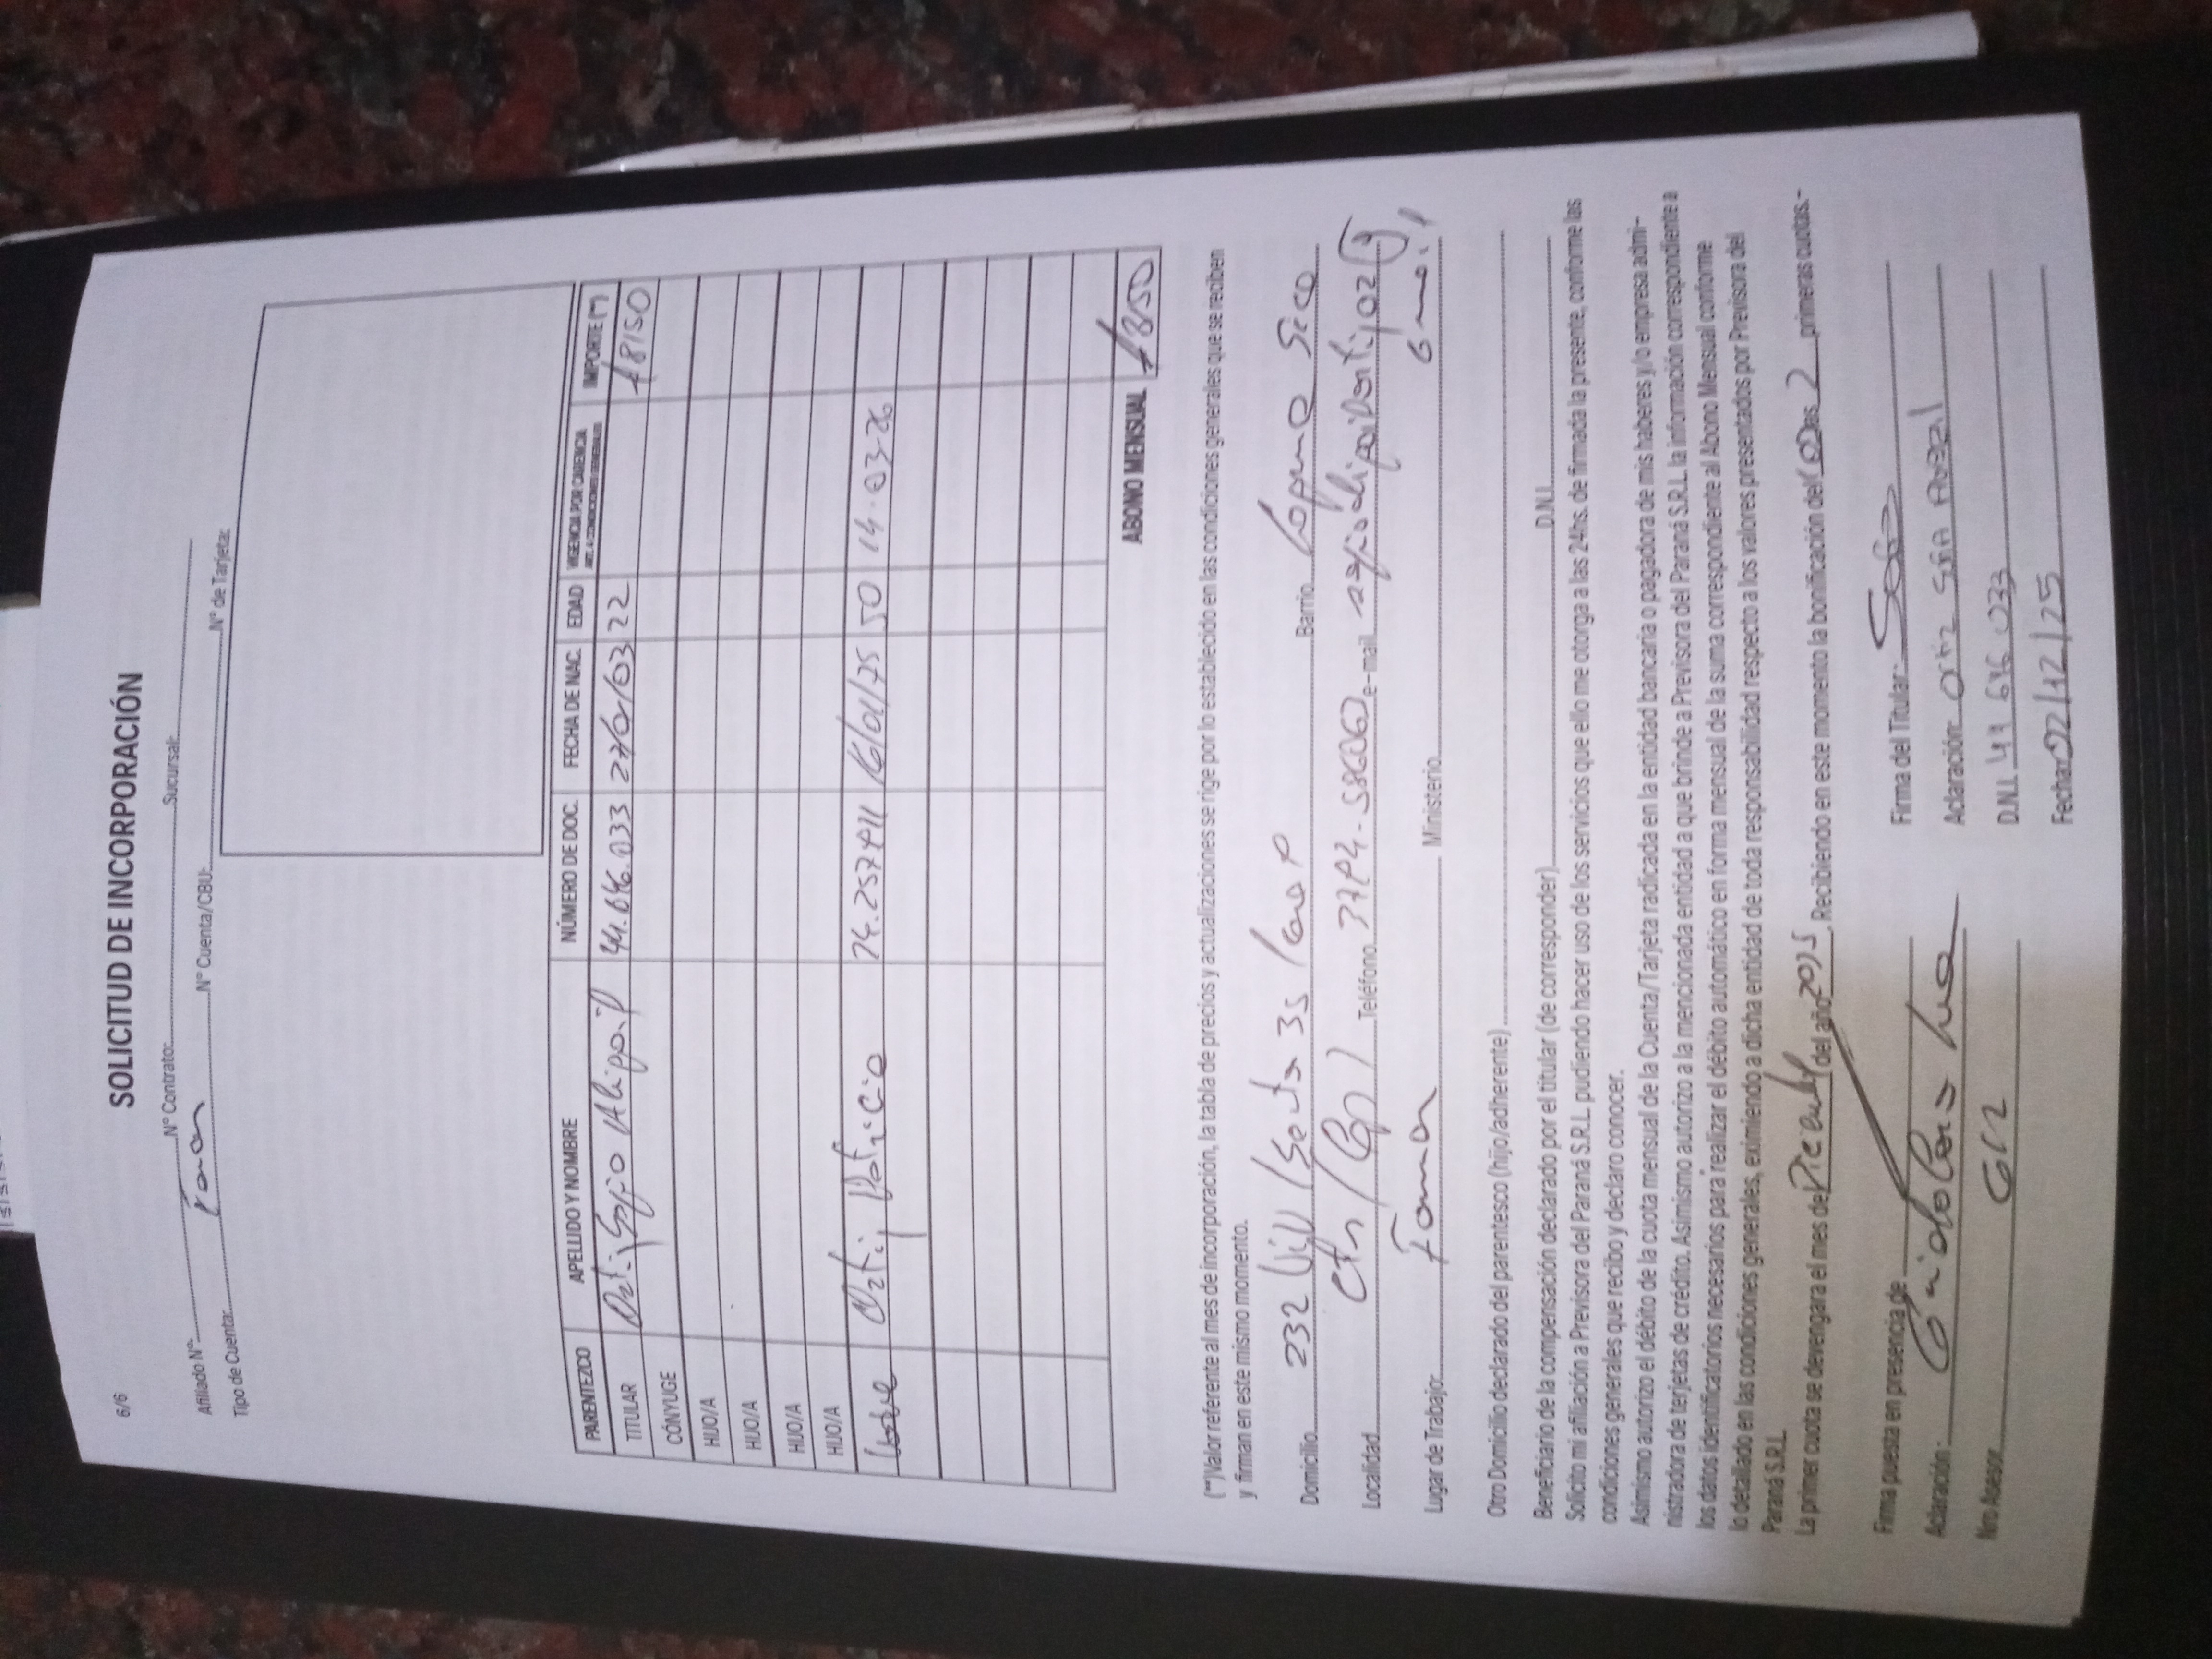 6/6
SOLICITUD DE INCORPORACIÓN
Afiliado Nº: Nº Contrato: Sucursal:
Tipo de Cuenta: Nº Cuenta/CBU: Nº de Tarjeta:
PARENTEZCO APELLIDO Y NOMBRE NÚMERO DE DOC. FECHA DE NAC. EDAD VIGENCIA POR CARENCIA IMPORTE (*)
ART. 4 CONDICIONES GENERALES
TITULAR Ortiz Sofia Abigail 44.646.033 27/01/03 22 $ 8150
CÓNYUGE
HIJO/A
HIJO/A
HIJO/A
HIJO/A
Ortiz Patricia 24.257411 16/01/75 50 14-03-26
ABONO MENSUAL $ 8150
(*)Valor referente al mes de incorporación, la tabla de precios y actualizaciones se rige por lo establecido en las condiciones generales que se reciben
y firman en este mismo momento.
Domicilio 232 Viv Sect 3s Casa Barrio Laguna Seca
Localidad Ctes (Cap) Teléfono e-mail
Lugar de Trabajo: Ministerio Gmail
Otro Domicilio declarado del parentesco (hijo/adherente)
Beneficiario de la compensación declarado por el titular (de corresponder) D.N.I.
Solicito mi afiliación a Previsora del Paraná S.R.L. pudiendo hacer uso de los servicios que ello me otorga a las 24hs. de firmada la presente, conforme las
condiciones generales que recibo y declaro conocer.
Asimismo autorizo el débito de la cuota mensual de la Cuenta/Tarjeta radicada en la entidad bancaria o pagadora de mis haberes y/o empresa admi-
nistradora de terjetas de crédito. Asimismo autorizo a la mencionada entidad a que brinde a Previsora del Paraná S.R.L. la información correspondiente a
los datos identificatorios necesarios para realizar el débito automático en forma mensual de la suma correspondiente al Abono Mensual conforme
lo detallado en las condiciones generales, eximiendo a dicha entidad de toda responsabilidad respecto a los valores presentados por Previsora del
Paraná S.R.L.
La primer cuota se devengara el mes de Diciembre del año 2025. Recibiendo en este momento la bonificación del/ de las 2 primeras cuotas.-
Firma puesta en presencia de Firma del Titular: Sofia
Aclaración: Aclaración: Ortiz Sofia Abigail
Nro Asesor 612 D.N.I. 44 646 033
Fecha: 02/12/25